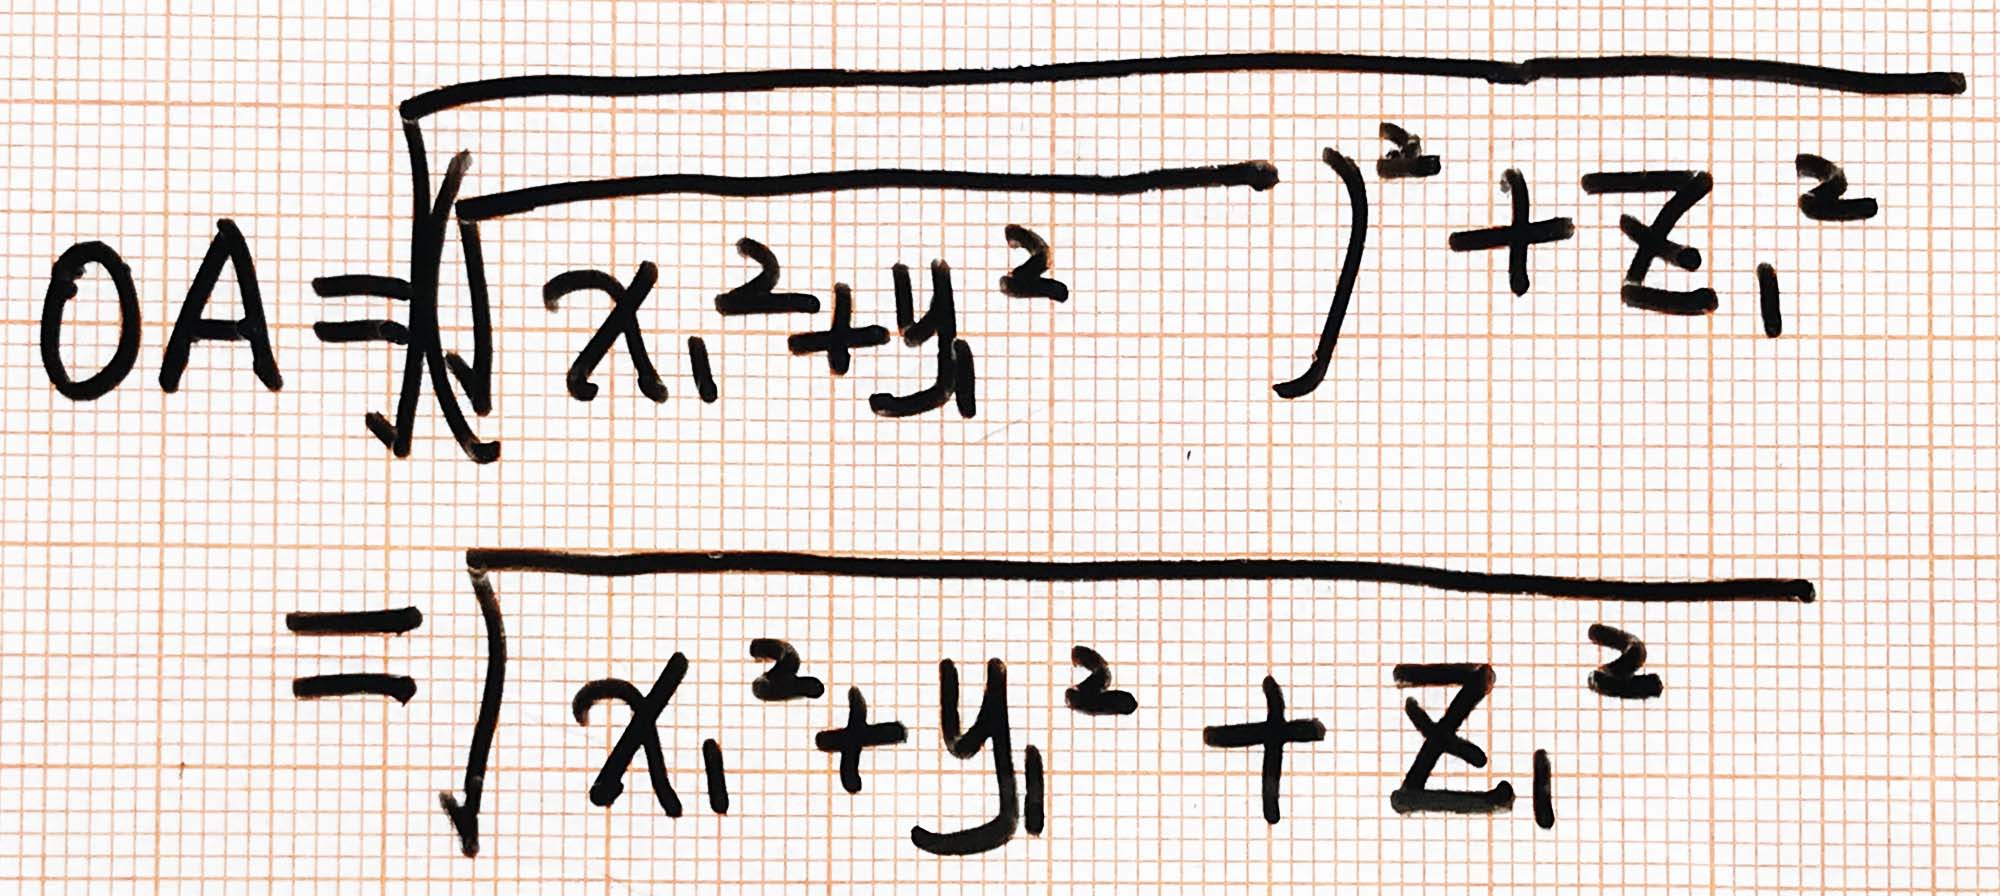 OA = √((√(x₁² + y₁²))² + z₁²)
= √(x₁² + y₁² + z₁²)